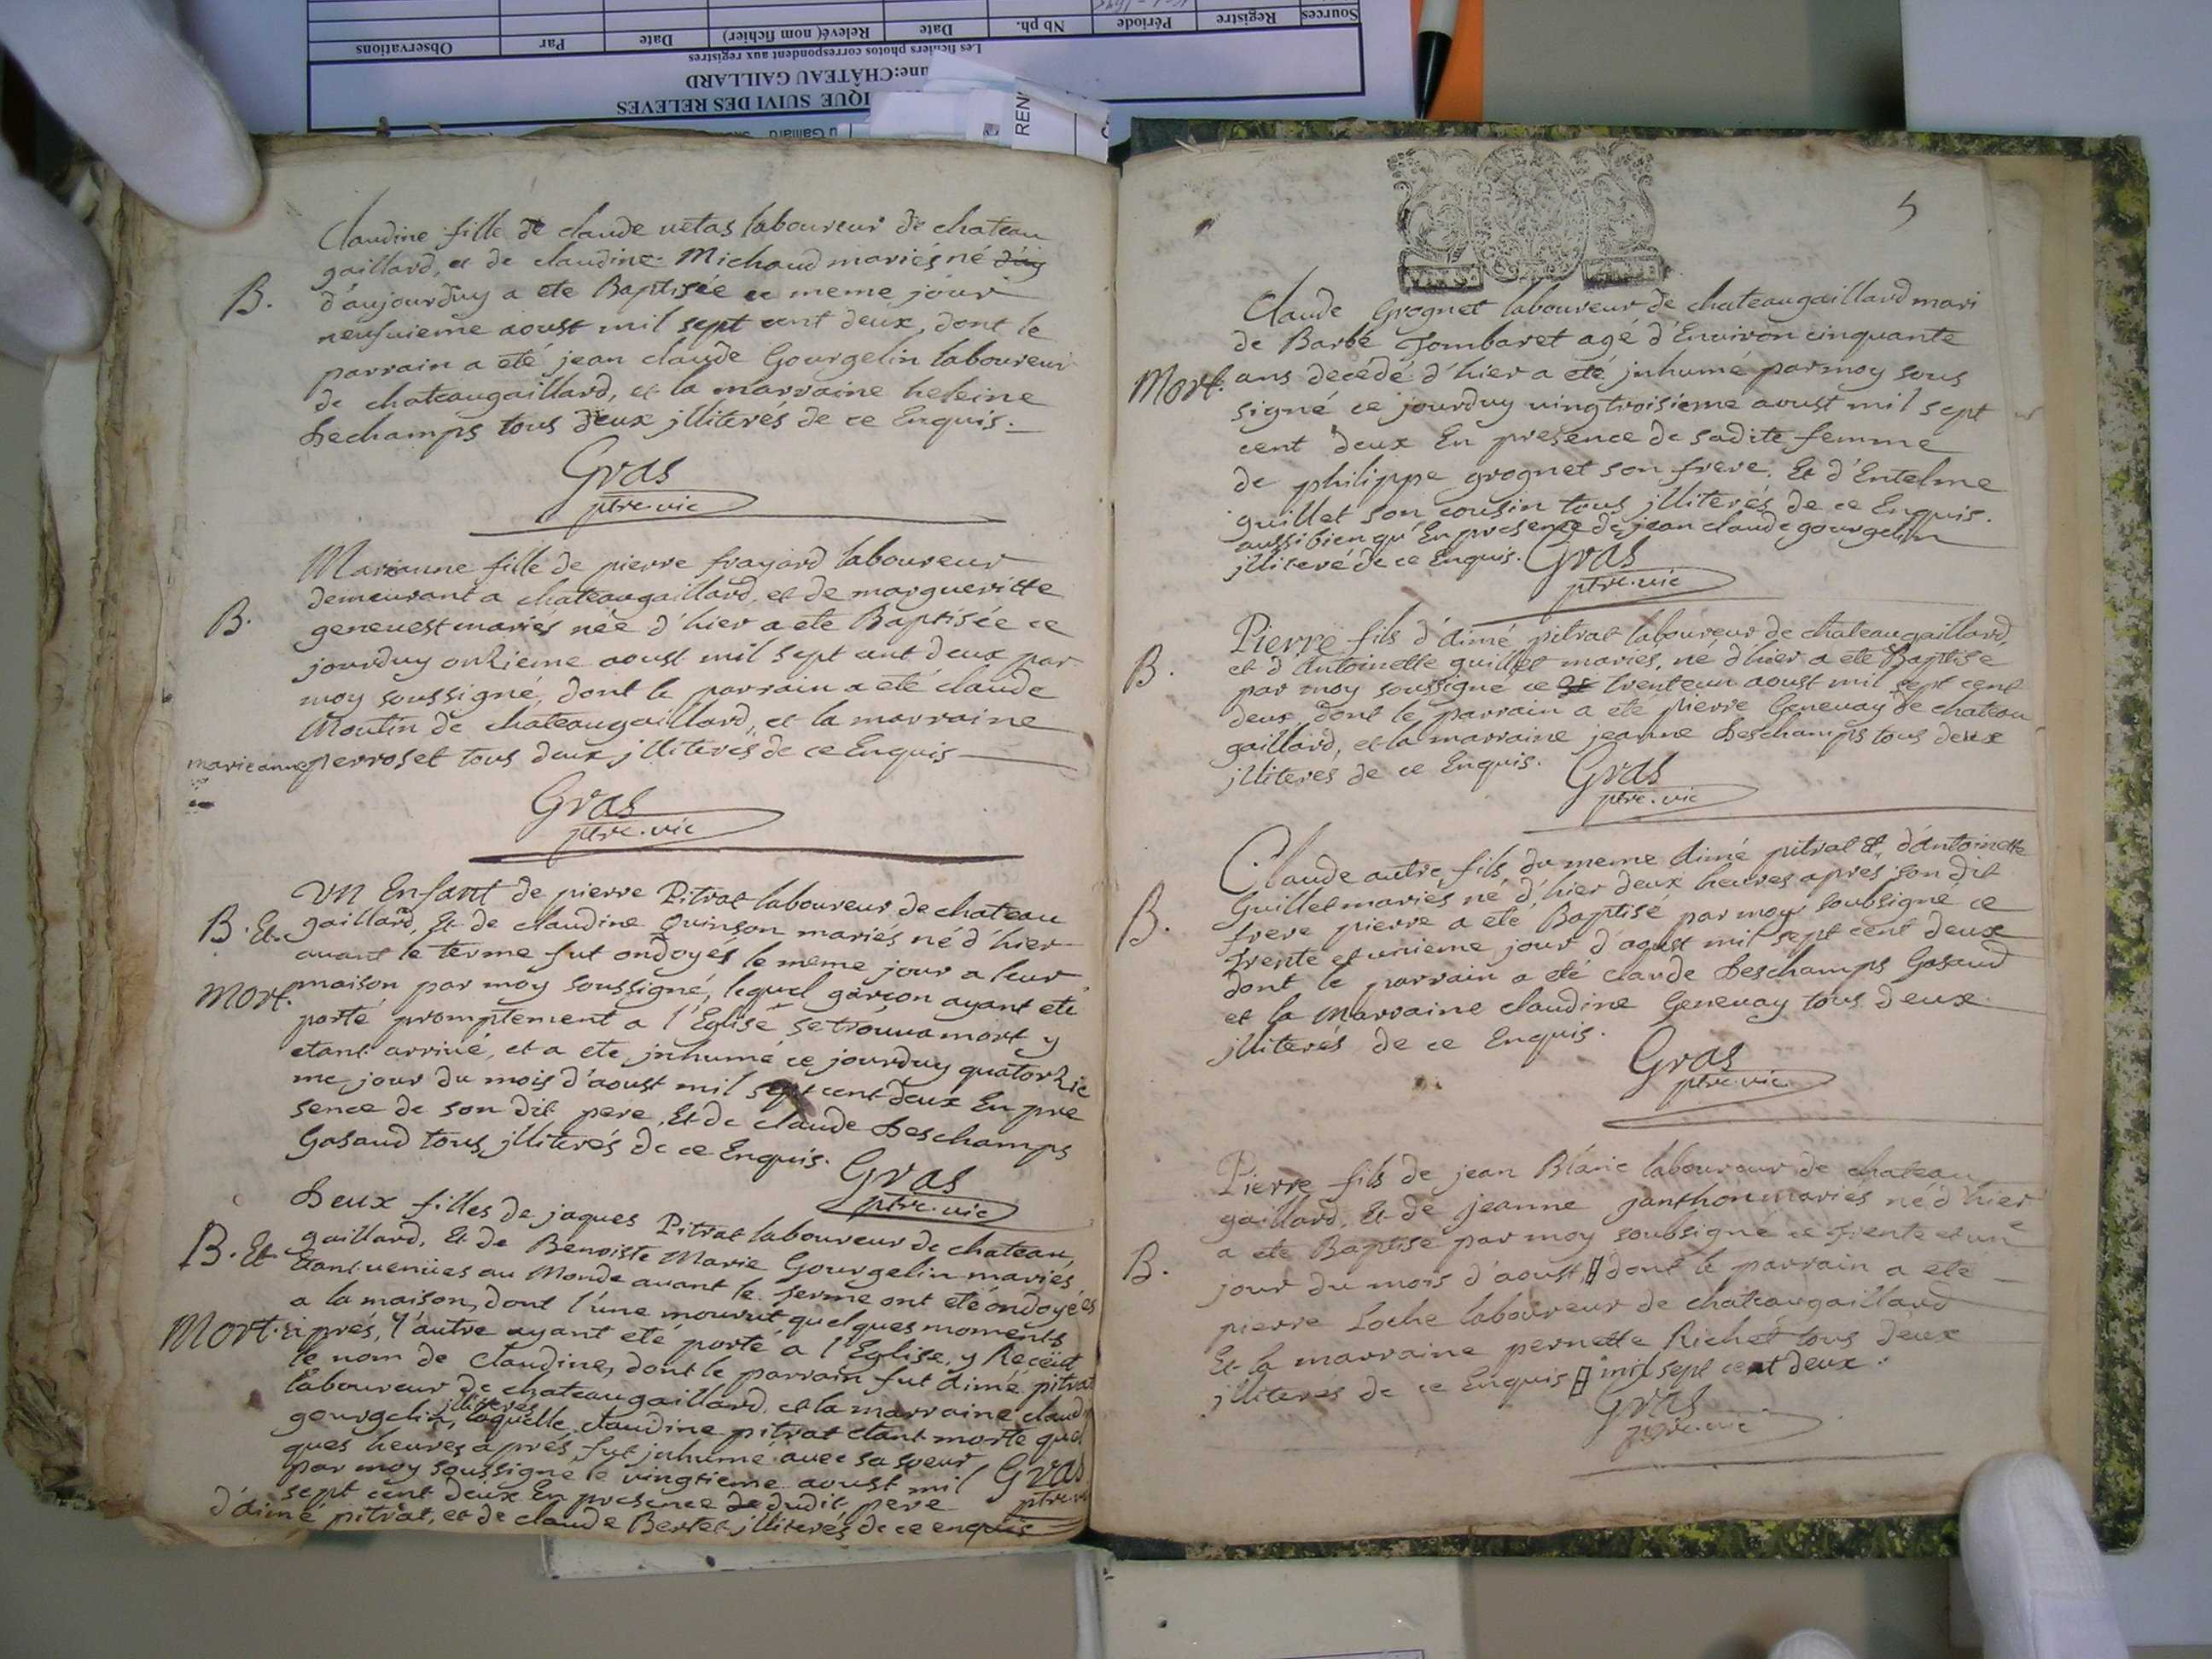 Sources
Registre
Période
Nb ph.
Date
Relevé(nom fichier)
Date
Par
Observations
Les fichiers photos correspondent aux registres
une:CHÂTEAU GAILLARD
IQUE SUIVI DES RELEVES
u Gaillard
REN
Claudine fille de claude uetas laboureur de chateau
gaillard, et de claudine Michaud mariés né
B.
d'aujourduy a ete Baptisée ce meme jour
neufuieme aoust mil sept cent deux, dont le
parrain a eté jean claude Gourgelin laboureur
de chateaugaillard, et la marraine heleine
Deschamps tous deux jlliterés de ce Enquis.
Gras
ptre.vic
Marianne fille de pierre frayard laboureur
demeurant a chateaugaillard, et de margueritte
B.
geneuest mariés née d'hier a ete Baptisée ce
jourduy onzieme aoust mil sept cent deux par
moy soussigné, dont le parrain a eté claude
Moutin de chateaugaillard, et la marraine
marieanne perroset tous deux jlliterés de ce Enquis
Gras
ptre.vic
Un Enfant de pierre Pitrat laboureur de chateau
B. Et
gaillard, Et de claudine Quinson mariés né d'hier
auant le terme fut ondoyés le meme jour a leur
Mort.
maison par moy soussigné, lequel garçon ayant eté
porté promptement a l'Eglise se trouua mort y
etant arriué, et a ete jnhumé ce jourduy quatorzie
me jour du mois d'aoust mil sept cent deux En pre
sence de son dit pere, Et de claude Deschamps
Gosaud tous jlliterés de ce Enquis.
Gras
ptre.vic
Deux filles de jaques Pitrat laboureur de chateau
B. Et
gaillard, Et de Benoiste Marie Gourgelin mariés
Etant uenües au Monde auant le terme ont eté ondoyées
a la maison, dont l'une mourut quelques moments
Mort.
aprés, l'autre ayant eté porté a l'Eglise, y Reçeut
le nom de Claudine, dont le parrain fut aimé pitrat
laboureur de chateaugaillard, et la marraine claudi
jlliterés
gourgelin, laquelle claudine pitrat etant morte quel
ques heures aprés, fut jnhumé auec sa soeur
par moy soussigné le uingtieme aoust mil
sept cent deux En presence de dudit pere
d'aimé pitrat, et de claude Bertet jlliterés de ce enquis
Gras
ptre.vic
5
Claude Grognet laboureur de chateaugaillard mari
de Barbe Jombaret agé d'Enuiron cinquante
Mort.
ans decédé d'hier a eté jnhumé par moy sous
signé ce jourduy uingtroisieme aoust mil sept
cent deux En presence de sadite femme
de philippe grognet son frere, Et d'Entelme
guillet son cousin tous jlliterés de ce Enquis.
aussi bien qu'En presence de jean claude gourgelin
jlliteré de ce Enquis.
Gras
ptre.vic
Pierre fils d'aimé pitrat laboureur de chateaugaillard,
B.
et d'Antoinette guillet mariés, né d'hier a ete Baptisé
par moy soussigné ce trenteun aoust mil sept cent
deux, dont le parrain a ete pierre Geneuay de chateau
gaillard, et la marraine jeanne Deschamps tous deux
jlliterés de ce Enquis.
Gras
ptre.vic
Claude autre fils du meme Aimé pitrat et d'Antoinette
Guillet mariés né d'hier deux heures aprés son dit
B.
frere pierre a eté Baptisé par moy soubsigné ce
trente et unieme jour d'aoust mil sept cent deux
dont le parrain a eté claude Deschamps Gosaud
et la Marraine claudine Geneuay tous deux
jlliterés de ce Enquis.
Gras
ptre.vic
Pierre fils de jean Blanc laboureur de chateau
gaillard, Et de jeanne janthon mariés né d'hier
B.
a ete Baptisé par moy soubsigné ce trente et un
jour du mois d'aoust, dont le parrain a eté
pierre Loche laboureur de chateaugaillard
Et la marraine pernette Richet tous deux
jlliterés de ce Enquis mil sept cent deux.
Gras
ptre.vic